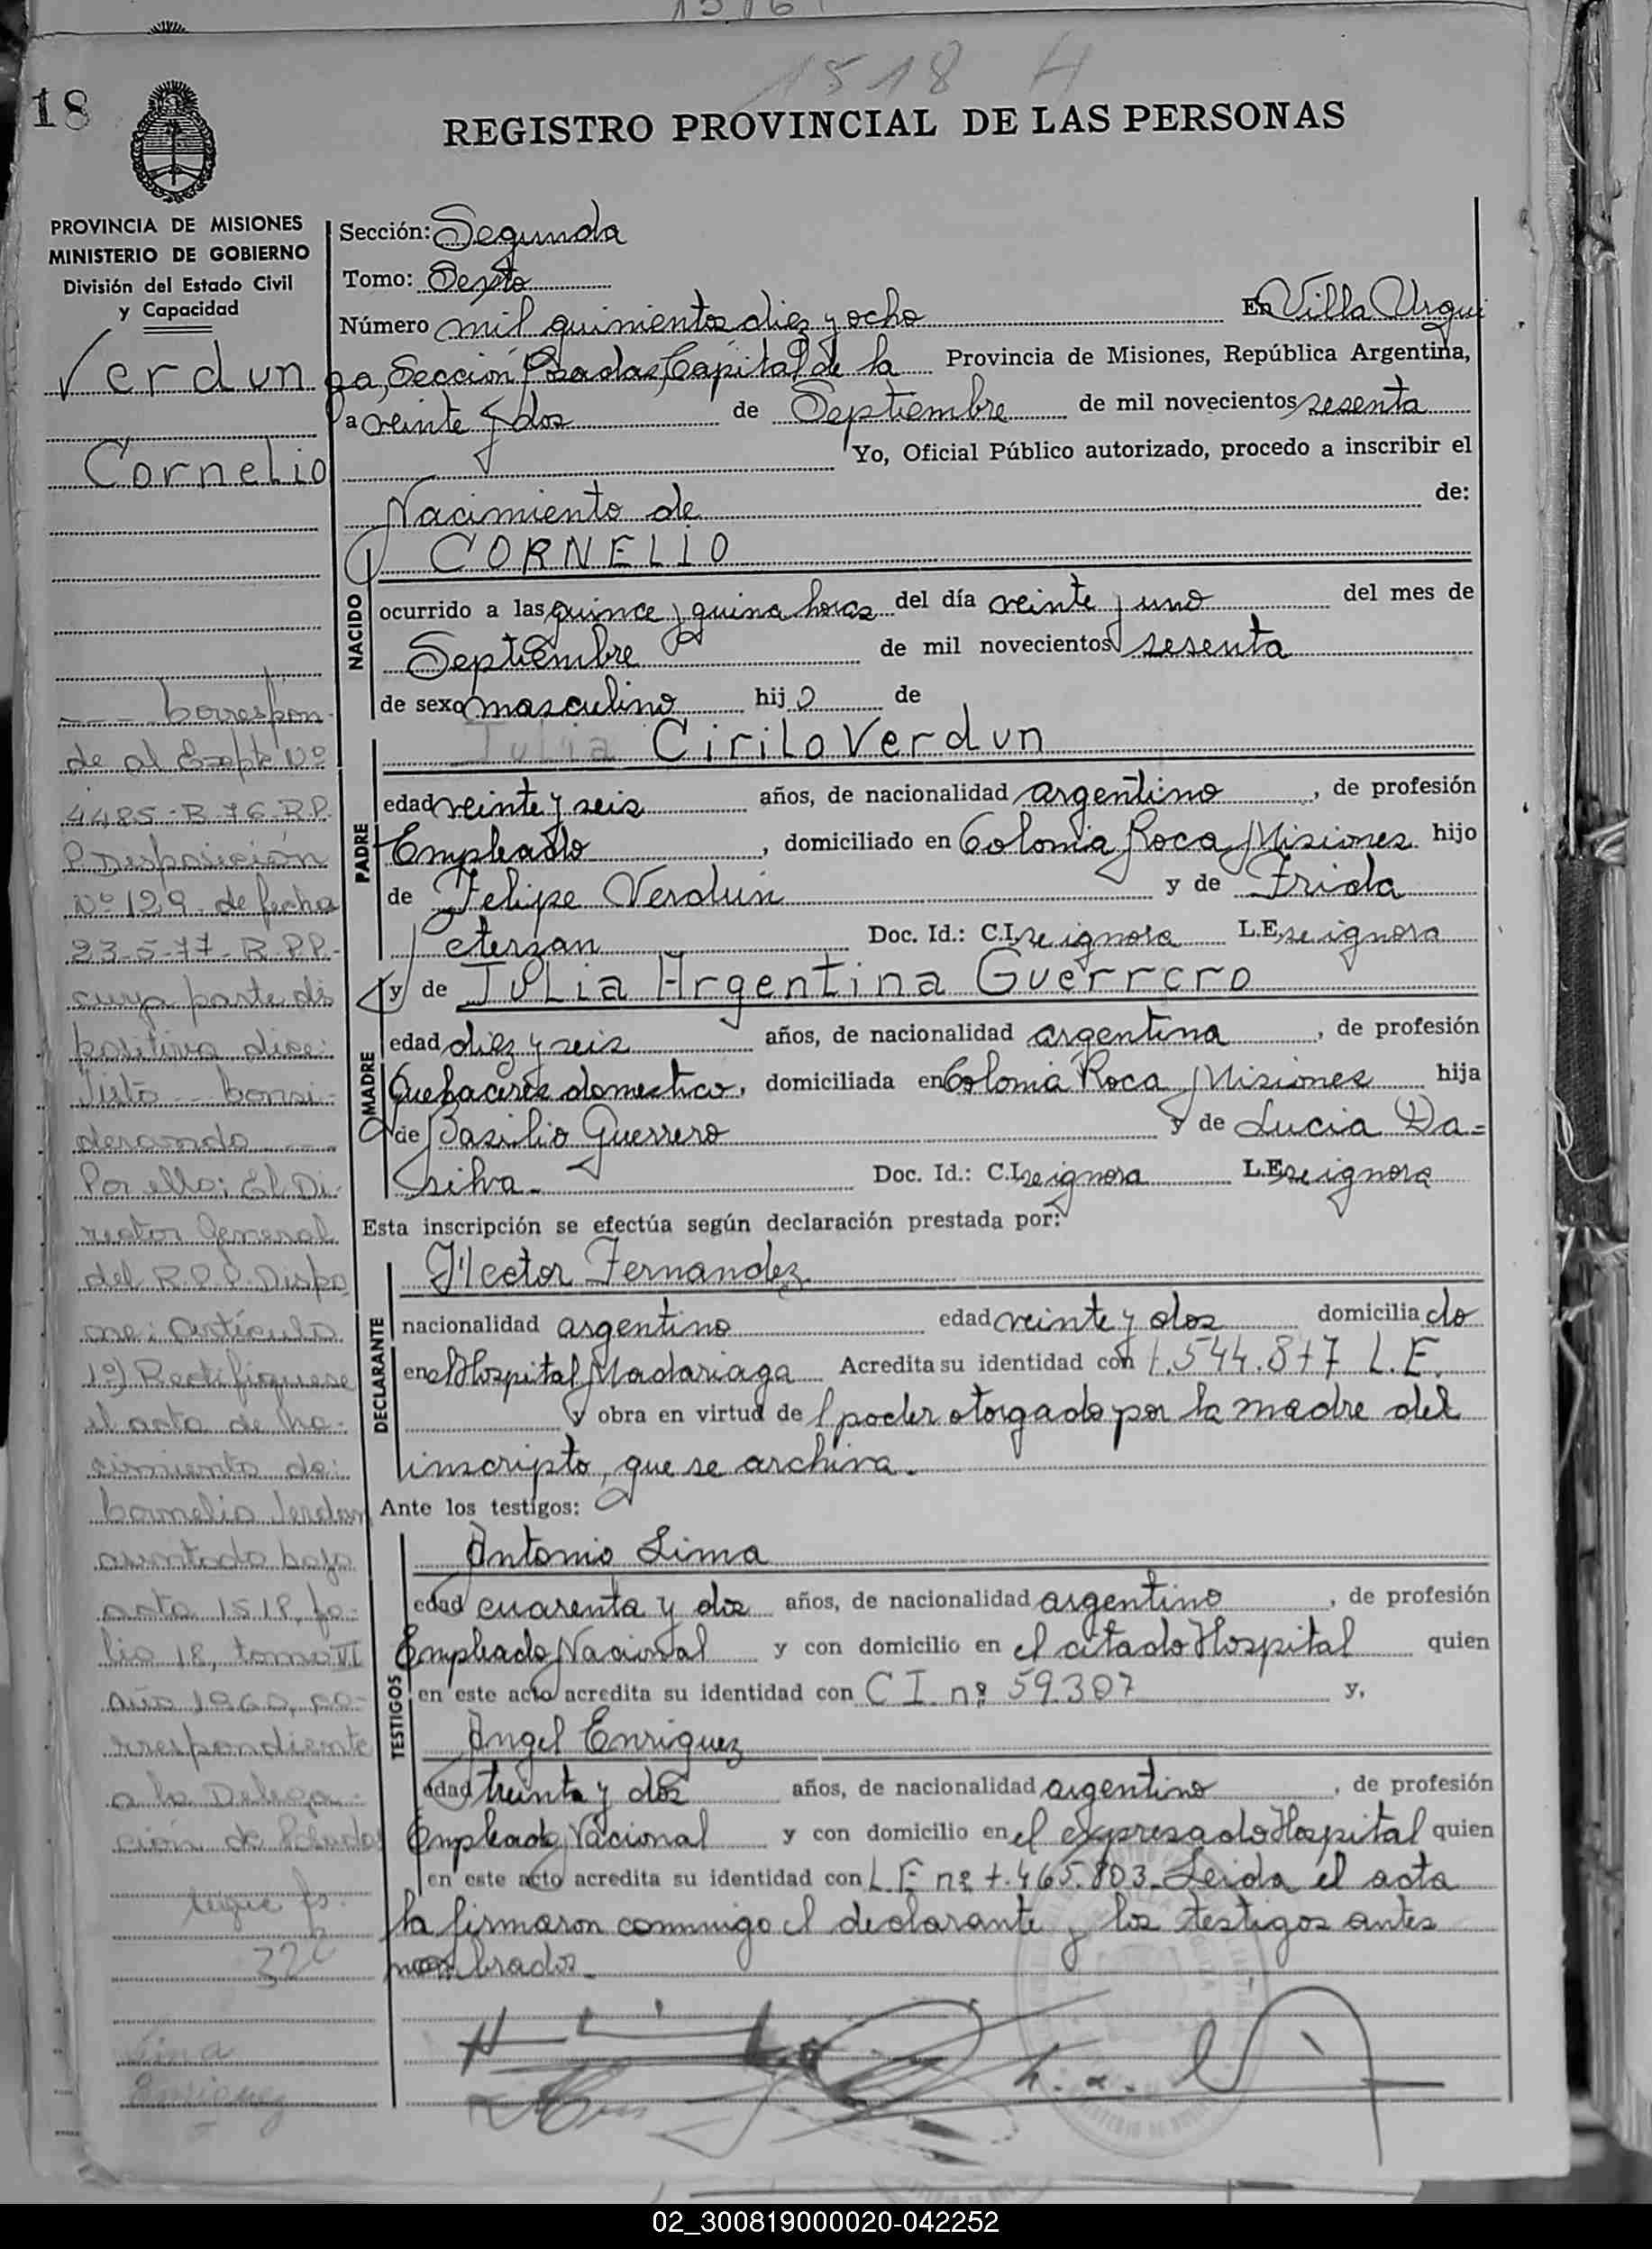 1518 H
18
REGISTRO PROVINCIAL DE LAS PERSONAS
PROVINCIA DE MISIONES
MINISTERIO DE GOBIERNO
División del Estado Civil
y Capacidad
Verdun
Cornelio
--- Correspon-
de al Expte Nº
4485-B-76-R.P.
P. Disposición
Nº 129 de fecha
23-5-77-R.P.P.-
cuya parte dis
positiva dice:
Visto -- Consi-
derando ---
Por ello: El Di-
rector General
del R.P.P. Dispo
ne: artículo
1º) Rectifíquese
el acta de na-
cimiento de:
Cornelio Verdun
asentado bajo
acta 1518, fo-
lio 18, tomo VI
año 1960, co-
rrespondiente
a la Delega-
ción de Posadas
sigue fs.
322
Lima
Enriquez
Sección: Segunda
Tomo: Sexto
Número mil quinientos diez y ocho En Villa Urqui
za, Sección Posadas, Capital de la Provincia de Misiones, República Argentina,
a veinte y dos de Septiembre de mil novecientos sesenta
Yo, Oficial Público autorizado, procedo a inscribir el
Nacimiento de de:
NACIDO
CORNELIO
ocurrido a las quince y quina horas del día veinte y uno del mes de
Septiembre de mil novecientos sesenta
de sexo masculino hijo de
PADRE
Julia Cirilo Verdun
edad veinte y seis años, de nacionalidad argentino, de profesión
Empleado, domiciliado en Colonia Roca, Misiones hijo
de Felipe Verdún y de Frida
eterzan Doc. Id.: C.I. se ignora L.E. se ignora
y de Julia Argentina Guerrero
MADRE
edad diez y seis años, de nacionalidad argentina, de profesión
Quehaceres domestico, domiciliada en Colonia Roca, Misiones hija
de Basilio Guerrero y de Lucia Da=
silva.- Doc. Id.: C.I. se ignora L.E. se ignora
Esta inscripción se efectúa según declaración prestada por:
DECLARANTE
Hector Fernandez
nacionalidad argentino edad veinte y dos domiciliado
en el Hospital Madariaga Acredita su identidad con 7.544.877 L.E.
y obra en virtud del poder otorgado por la madre del
inscripto, que se archiva.
Ante los testigos:
TESTIGOS
Antonio Lima
edad cuarenta y dos años, de nacionalidad argentino, de profesión
Empleado Nacional y con domicilio en el citado Hospital quien
en este acto acredita su identidad con C I. nº 59.307 y,
Angel Enriquez
edad treinta y dos años, de nacionalidad argentino, de profesión
Empleado Nacional y con domicilio en el expresado Hospital quien
en este acto acredita su identidad con L.E nº 7.465.803. Leida el acta
la firmaron conmigo el declarante y los testigos antes
nombrados.
02_300819000020-042252